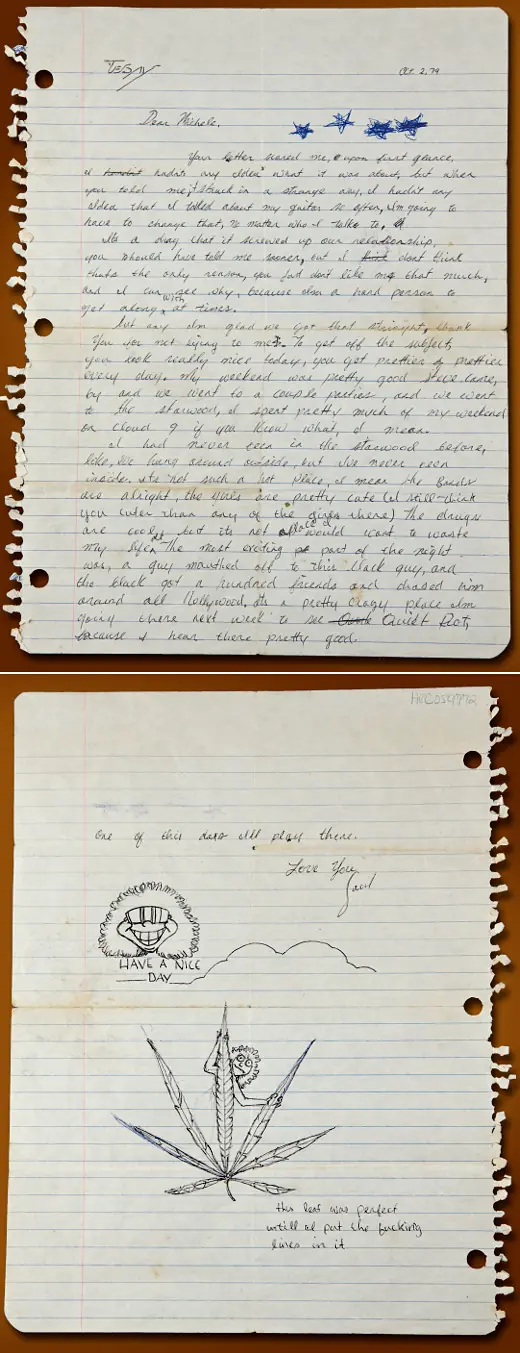 Oct. 2, 79
Dear Michele,
Your letter scared me, upon first glance,
I hadnt any Idea what it was about, but when
you told me, it stuck in a strange way, I hadn't any
Idea that I talked about my guitar so often, I'm going to
have to change that, No matter who I talk to,
Its a drag that it screwed up our relationship,
you should have told me sooner, but I dont think
thats the only reason, you just don't like me that much,
and I can see why, because I'm a hard person to
get along with at times.
but any I'm glad we got that straight, thank
You for not lying to me. To get off the subject,
you look really nice today, you get prettier & prettier
every day. My weekend was pretty good Steve came,
by and we went to a couple parties, and we went
to the starwood, I spent pretty much of my weekend
on cloud 9 if you know what, I mean.
I had never been in the starwood before,
like, We hang around outside, but I've never been
inside. its not such a hot place, I mean the Bands
are alright, the girls are pretty cute (I still think
you cuter than any of the girls there) The drugs
are cool, but its not a place I would want to waste
my life at. The most exiting part of the night
was, a guy mouthed off to this black guy, and
the black got a hundred friends and chased him
around all Hollywood, its a pretty crazy place I'm
going there next week to see Quiet Riot,
because I hear there pretty good.
One of this days I'll play there.
Love You
Saul
HAVE A NICE
DAY
this leaf was perfect
untill I put the fucking
lines in it